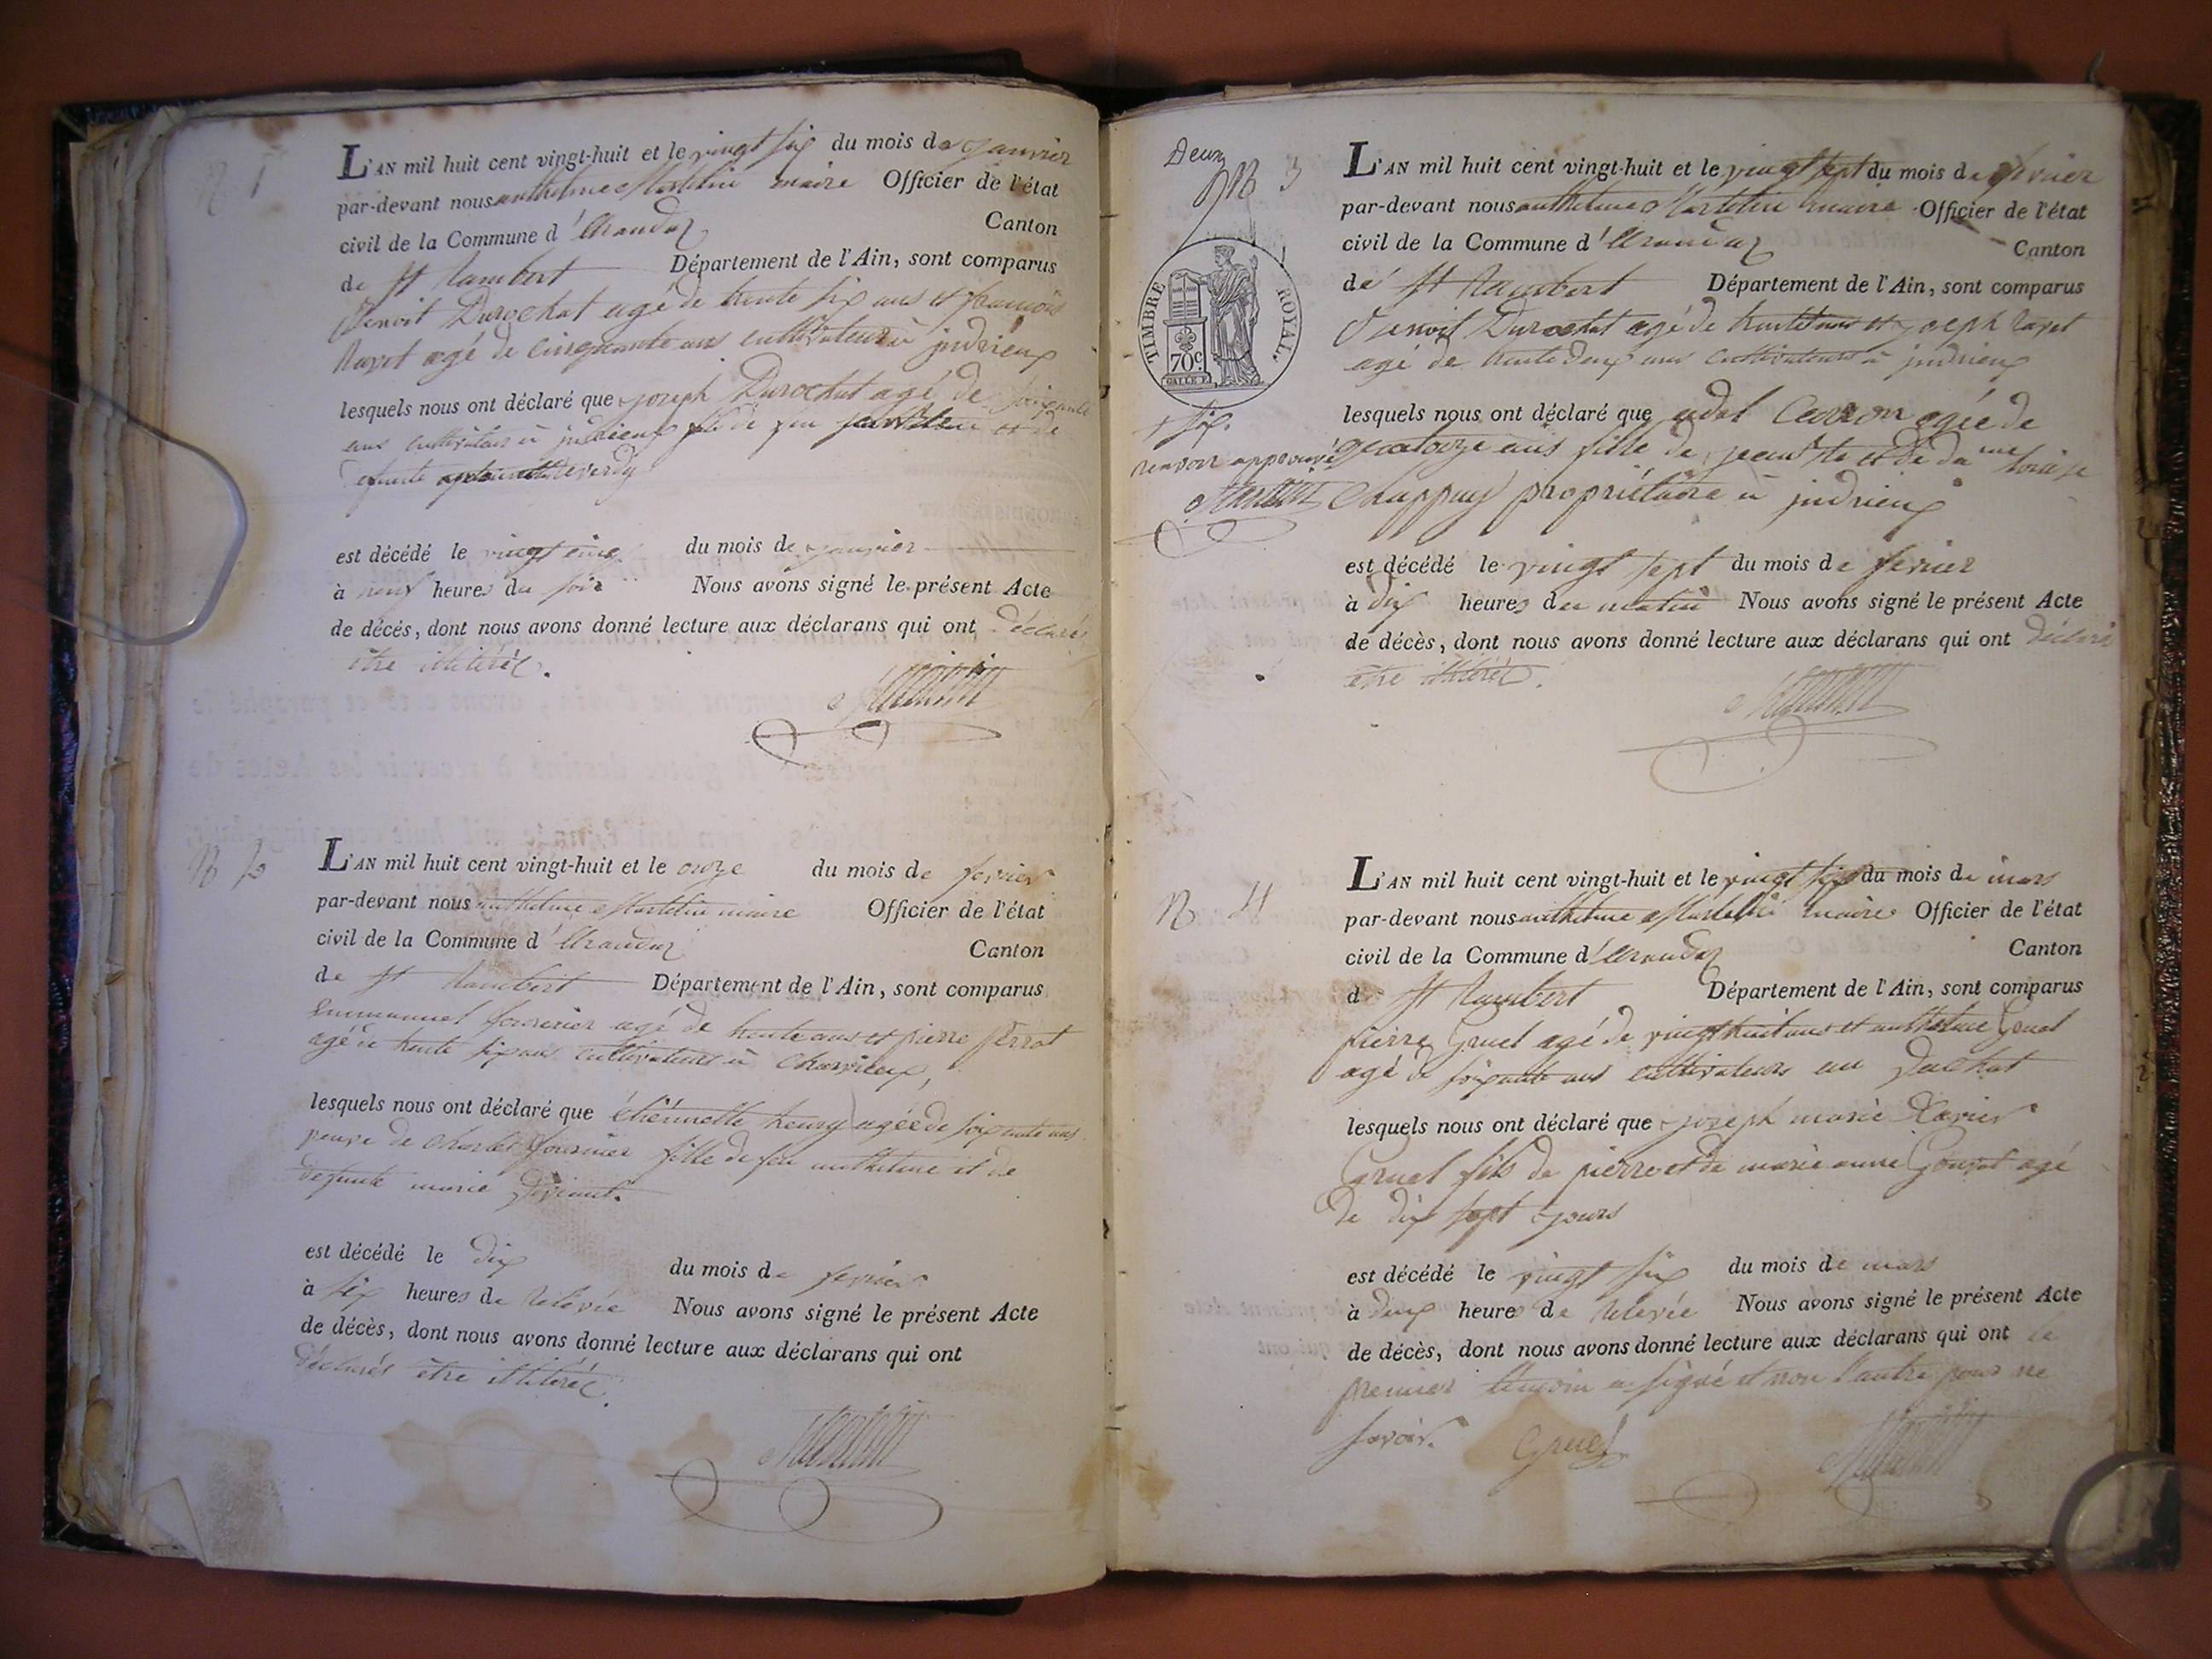 N 1
L'AN mil huit cent vingt-huit et le vingt six du mois de janvier
par-devant nous anthelme Martelin maire Officier de l'état
civil de la Commune d'Arandaz Canton
de St Rambert Département de l'Ain, sont comparus
Benoit Durochat agé de trente six ans et francois
Ravet agé de cinquante ans cultivateurs à judrieux
lesquels nous ont déclaré que joseph Durochat agé de soixante
ans cultivateur à judrieux fils de feu et de
defunte
est décédé le vingt cinq du mois de janvier
à neuf heures du soir Nous avons signé le présent Acte
de décès, dont nous avons donné lecture aux déclarans qui ont déclarés
être illitérés.
Martelin
N 2
L'AN mil huit cent vingt-huit et le onze du mois de fevrier
par-devant nous anthelme Martelin maire Officier de l'état
civil de la Commune d'Arandaz Canton
de St Rambert Département de l'Ain, sont comparus
Emmanuel fournier agé de trente ans et pierre perrot
agé de trente six ans cultivateurs à Charvieux,
lesquels nous ont déclaré que étiennette henry agée de soixante ans
veuve de Charles fournier fille de feu anthelme et de
defunte marie
est décédé le dix du mois de fevrier
à six heures de relevée Nous avons signé le présent Acte
de décès, dont nous avons donné lecture aux déclarans qui ont
déclarés être illitérés.
Martelin
Deux
N 3
TIMBRE ROYAL.
70c
+ six.
renvoi approuvé
Martelin
L'AN mil huit cent vingt-huit et le vingt sept du mois de fevrier
par-devant nous anthelme Martelin maire Officier de l'état
civil de la Commune d'Arandaz Canton
de St Rambert Département de l'Ain, sont comparus
Benoit Durochat agé de trente + ans et joseph Ravet
agé de trente deux ans cultivateurs à judrieux
lesquels nous ont déclaré que Carron agée de
quatorze ans fille de jean Bte et de dame
Chappuy propriétaire à judrieux
est décédé le vingt sept du mois de fevrier
à dix heures du matin Nous avons signé le présent Acte
de décès, dont nous avons donné lecture aux déclarans qui ont déclarés
être illitérés.
Martelin
N 4
L'AN mil huit cent vingt-huit et le vingt six du mois de mars
par-devant nous anthelme Martelin maire Officier de l'état
civil de la Commune d'Arandaz Canton
de St Rambert Département de l'Ain, sont comparus
pierre Gruel agé de vingt huit ans et anthelme Gruel
agé de soixante ans cultivateurs au
lesquels nous ont déclaré que joseph marie Xavier
Gruel fils de pierre et de marie anne agé
de dix sept jours
est décédé le vingt six du mois de mars
à deux heures de relevée Nous avons signé le présent Acte
de décès, dont nous avons donné lecture aux déclarans qui ont le
premier témoin a signé et non l'autre pour ne
savoir. Gruel
Martelin